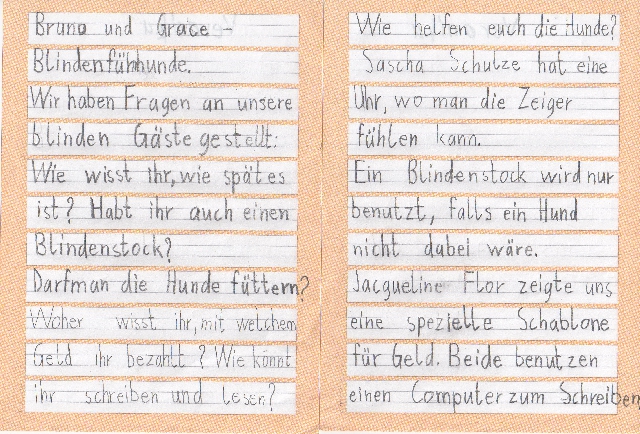 Bruno und Grace –
Blindenführhunde.
Wir haben Fragen an unsere
blinden Gäste gestellt:
Wie wisst ihr, wie spät es
ist? Habt ihr auch einen
Blindenstock?
Darf man die Hunde füttern?
Woher wisst ihr, mit welchem
Geld ihr bezahlt? Wie könnt
ihr schreiben und lesen?
Wie helfen euch die Hunde?
Sascha Schulze hat eine
Uhr, wo man die Zeiger
fühlen kann.
Ein Blindenstock wird nur
benutzt, falls ein Hund
nicht dabei wäre.
Jacqueline Flor zeigte uns
eine spezielle Schablone
für Geld. Beide benutzen
einen Computer zum Schreiben